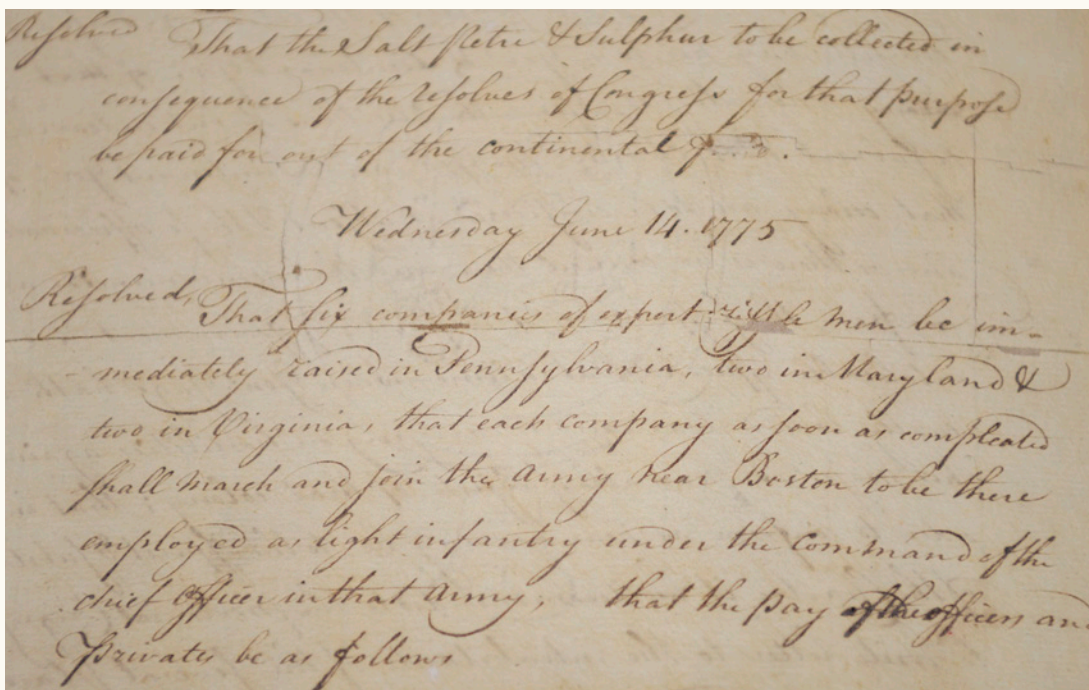 Resolved That the Salt petre & Sulphur to be collected in
consequence of the resolves of Congress for that purpose
be paid for out of the continental
Wednesday June 14. 1775
Resolved, That six companies of expert rifle men be im-
- mediately raised in Pennsylvania, two in Maryland &
two in Virginia, that each company as soon as compleated
shall march and join the army near Boston to be there
employed as light infantry under the command of the
chief Officer in that army; that the pay of the officers and
Privates be as follows